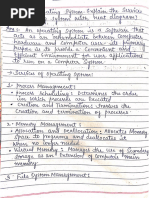 Operating System Explain the Service
System with neat diagram:
Ans: An Operating System is a Software that
acts as an intermediate between Computer
Hardware and Computer user. Its primary
Purpose is to provide a Convenient and
efficient environment for user applications
to run on a Computer System.
→ Services of Operating System:
1- Process Management:
• Process Scheduling: Determines the order
in which process are executed
• Creation and Termination: Involves the
creation and termination of processes
2- Memory Management:
• Allocation and Deallocation: Allocates Memory
Space to programs and deallocates it
when no longer needed.
• Virtual Memory: Manages the use of Secondary
Storage as an Extension of Computer's main
memory.
3. File System Management: